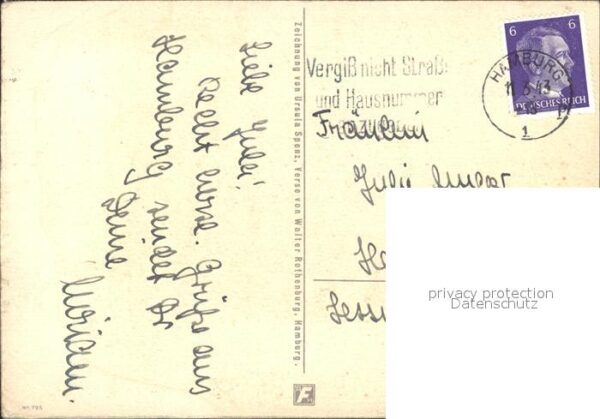 Liebe Julie!
Recht herzl. Grüße aus
Hamburg sendet Dir
Deine
Zeichnung von Ursula Spanz, Verse von Walter Rothenburg, Hamburg.
Vergiß nicht Straße
und Hausnummer
HAMBURG
1
6 6
DEUTSCHES REICH
Fräulein
Julie
privacy protection
Datenschutz
F